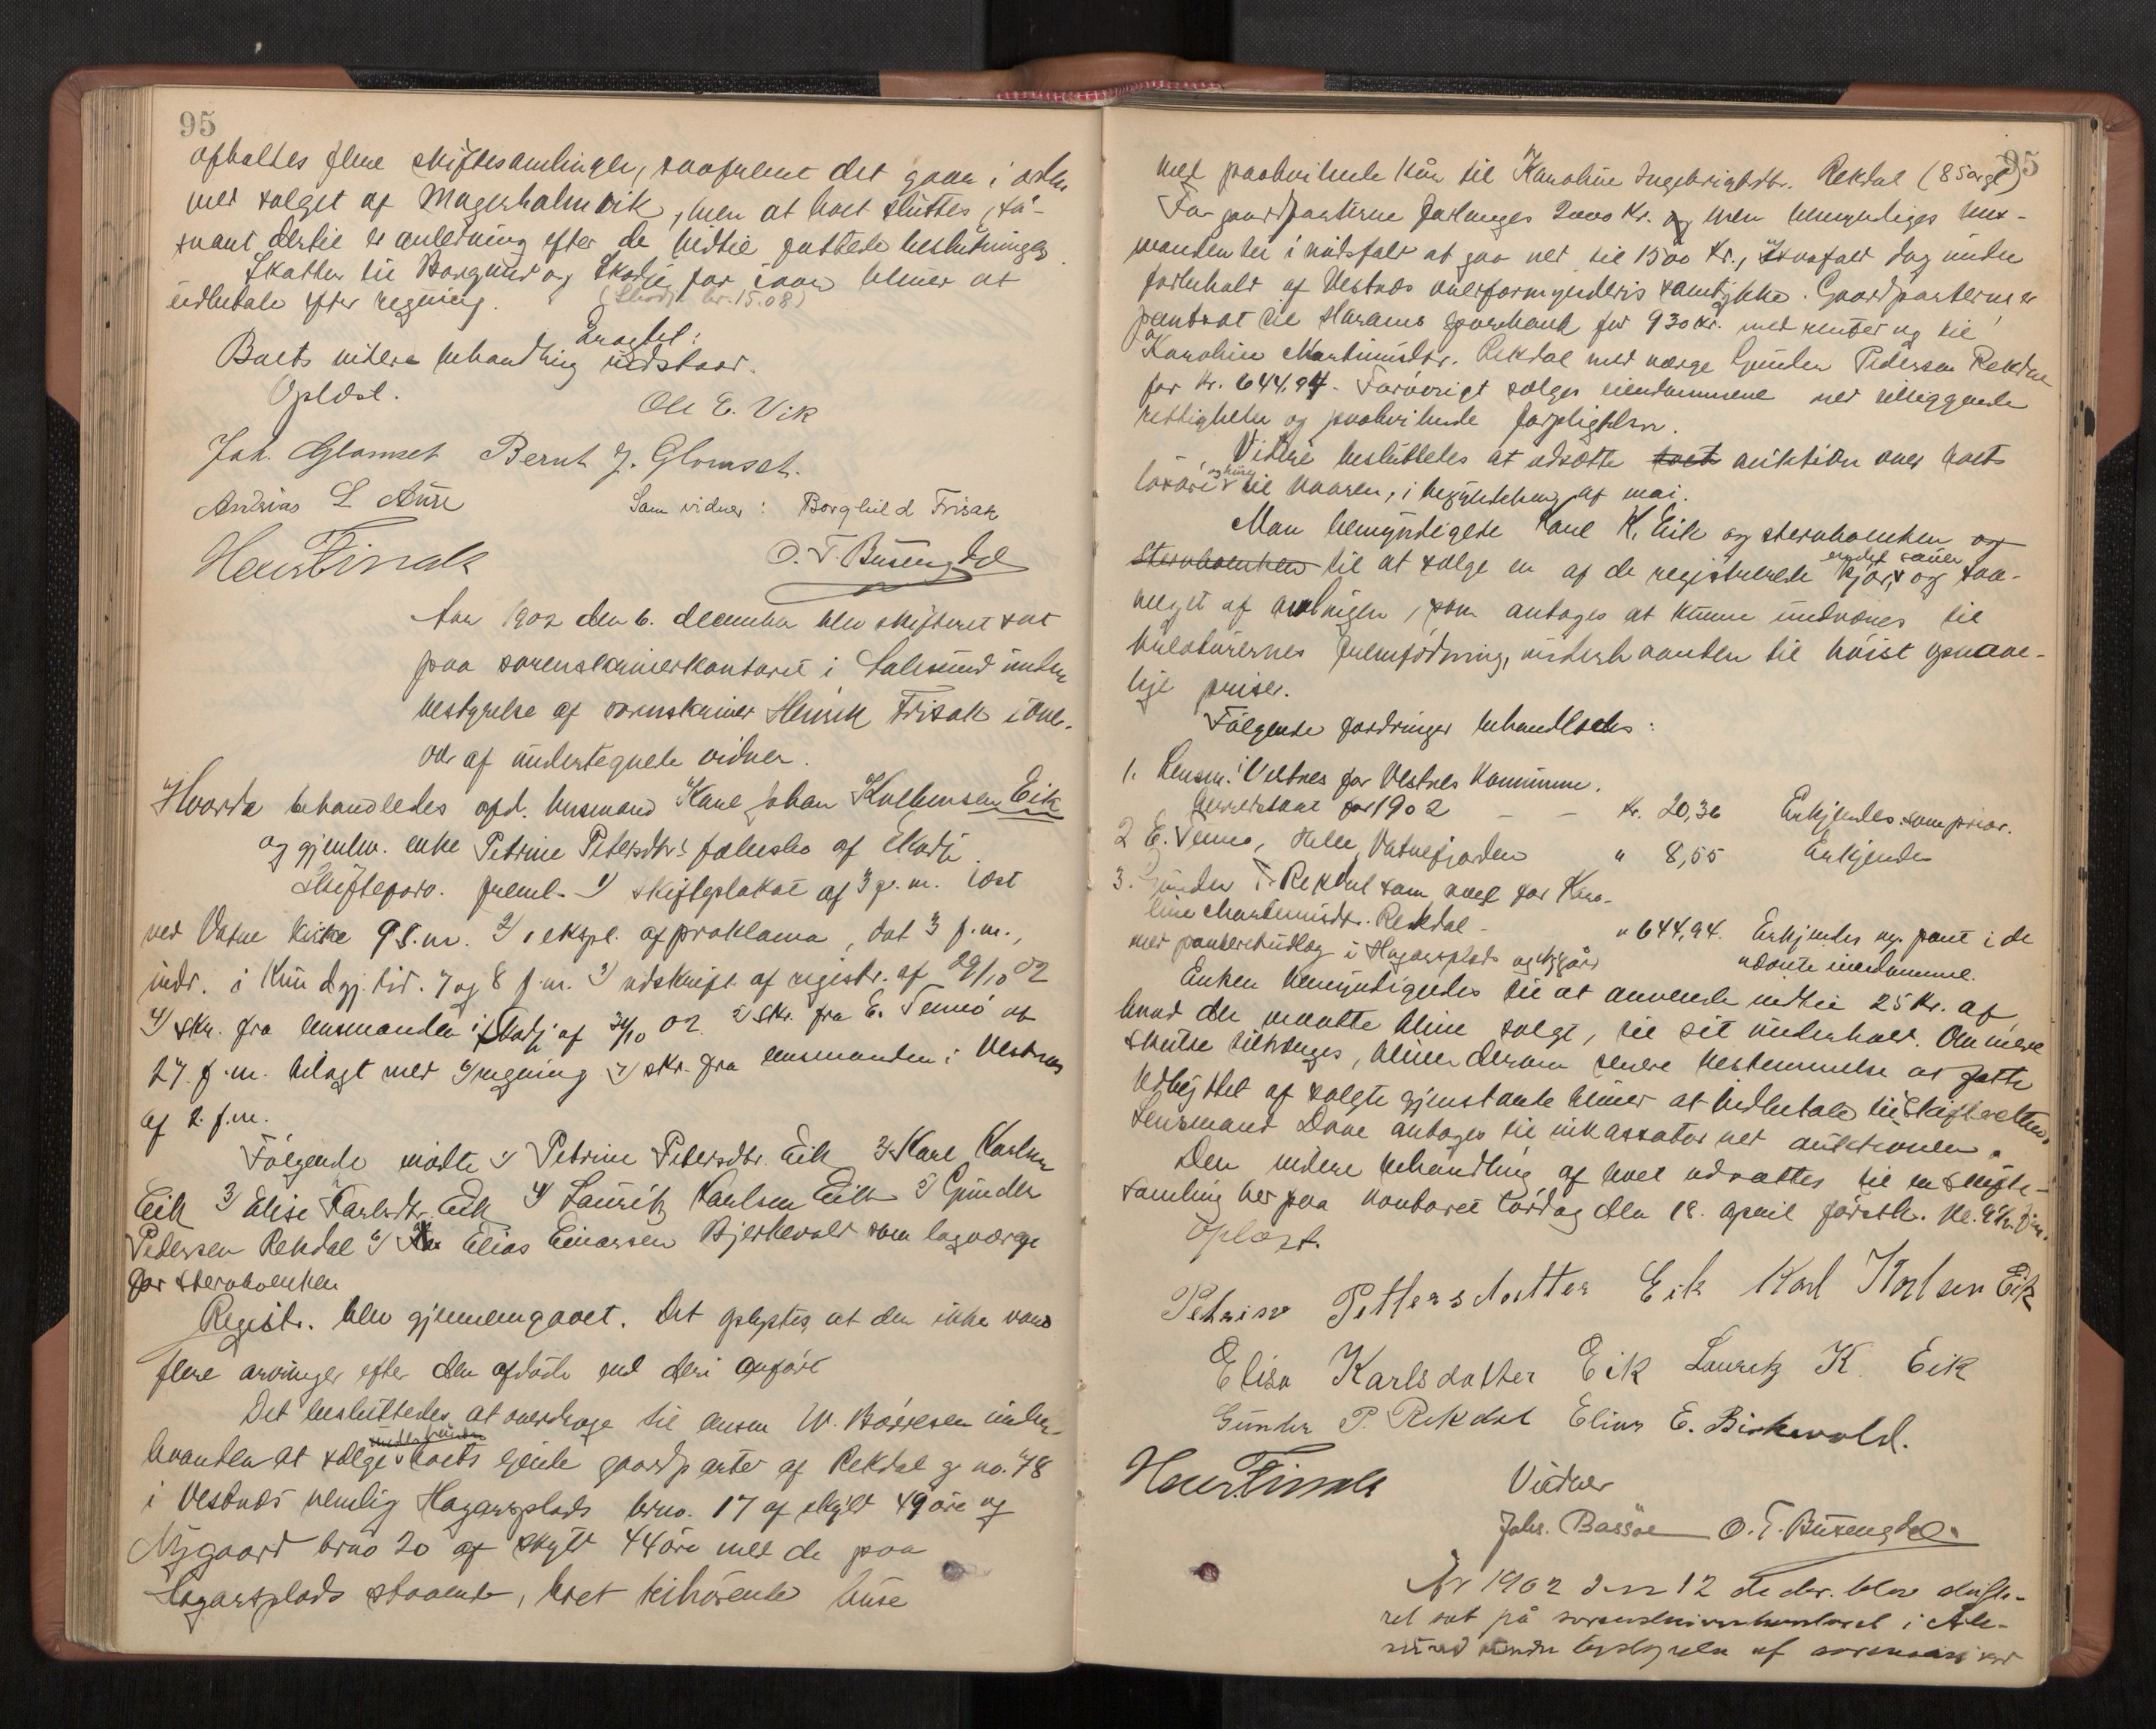 95
afholdes flere skiftesamlinger, saafremt det gaar i orden
med salget af Magerholmvik, men at boet sluttes, så-
snart dertil er anledning efter de hidtil fattede beslutninger.
Skatten til Borgund og Skodje for iaar bliver at
udbetale efter regning. (Skodje kr. 15.08)
Eragtet:
Boets videre behandling udstaar.
Oplæst.
Ole E. Vik
Joh. Glomset Bernt J. Glomset.
Andreas L Aure Som vidner: Borghild Frisak
Henr Frisak O. T. Busengdal
Aar 1902 den 6. december blev skifteret sat
paa sorenskriverkontoret i Aalesund under
bestyrelse af sorenskriver Henrik Frisak i over-
vær af undertegnede vidner.
Hvorda behandledes afd. husmand Karl Johan Eik
og gjenlev. enke Petrine Petersdtrs fællesbo af Skodje.
Skifteforv. freml. 1) skifteplakat af 3 f.m. læst
ved Vatne kirke 9 f.m. 2) 1 ekspl. af proklama, dat 3 f.m.,
indr. i Kundgj. tid. 7 og 8 f.m. 3) udskrift af registr. af 29/10 02
4) skr. fra lensmanden i Skodje af 02. 5) skr. fra E. Tennø af
27. f.m. bilagt med 6) regning 7) skr. fra lensmanden i Vestnes
af 2. f.m.
Følgende mødte 1) Petrine Petersdtr. Eik 2) Karl Karlsen
Eik 3) Elise Karlsdtr. Eik 4) Lauritz Karlsen Eik 5) Gunder
Pedersen Rekdal 6) Elias Einarsen Bjerkevold som lagværge
for stervboenken
Registr. blev gjennemgaaet. Det oplystes, at der ikke var
flere arvinger efter den afdøde end deri anført
Det besluttedes at overdrage til lensm W. Børresen underhaanden
haanden at sælge boets eiende gaardparter af Rekdal g. no. 78
i Vestnes nemlig Hagarsplads brno. 17 af skyld 49 øre og
Nygaard brno 20 af skyld 44 øre med de paa
Hagarsplads staaende, boet tilhørende huse
95
med paahvilende kår til Karoline Ingebrigtsdtr. Rekdal (85 argl)
For gaardparterne forlanges 2000 Kr. og men bemyndiges lens-
manden til i nødsfald at gaa ned til 1500 Kr., I saafald dog under
forbehold af Vestnes overformynderis samtykke. Gaardparterne er
pantsat til Harams sparebank for 930 Kr. med renter og til
Karoline Martinusdtr. Rekdal med værge Gunder Pedersen Rekdal
for Kr. 644,94. Forøvrigt sælges eiendommene med tilliggende
rettigheder og paahvilende forpligtelser.
Videre besluttedes at udsætte boet auktion over boets
løsøre til vaaren, i begyndelsen af mai.
Man bemyndigede Karl K. Eik og stervboenken og
stervboenken til at sælge en af de registrerede kjør, endel sauer og saa-
meget af avlingen, som antages at kunne undværes til
kreaturernes fremfødning, underhaanden til høist opnaae-
lige priser.
Følgende fordringer behandledes:
1. Lensm. i Vestnes for Vestnes Kommune.
for 1902 — — Kr. 20,36 Erkjendes som prior.
2 E. Tennø, Helle, Vatnefjorden " 8,55 Erkjendes
3. Gunder P. Rekdal som værge for Karo-
line Martinusdtr. Rekdal — " 644,94. Erkjendes og pant i de
med panteretudlæg i Hagarsplads og Nygård udsatte eiendomme.
Enken bemyndigedes til at anvende indtil 25 Kr. af
hvad der maatte blive solgt, til sit underhold. Om mere
skulde tiltrænges, bliver derom senere bestemmelse at fatte
Udbyttet af solgte gjenstande bliver at indbetale til Skifteretten.
Lensmand Dave antages til inkassator ved auktionen.
Den videre behandling af boet udsættes til en skifte-
samling her paa kontoret lørdag den 18. april førstk. kl.
Oplæst.
Petrine Pettersdatter Eik Karl Karlsen Eik
Elisa Karlsdatter Eik Lauritz K. Eik
Gunder P. Rekdal Elias E. Birkevold.
Henr. Frisak Vidner
Johs. Bassøe O. T. Busengdal.
År 1902 den 12 decbr. blev skifte-
ret sat på sorenskriverkontoret i Åle-
sund under bestyrelse af sorenskriver